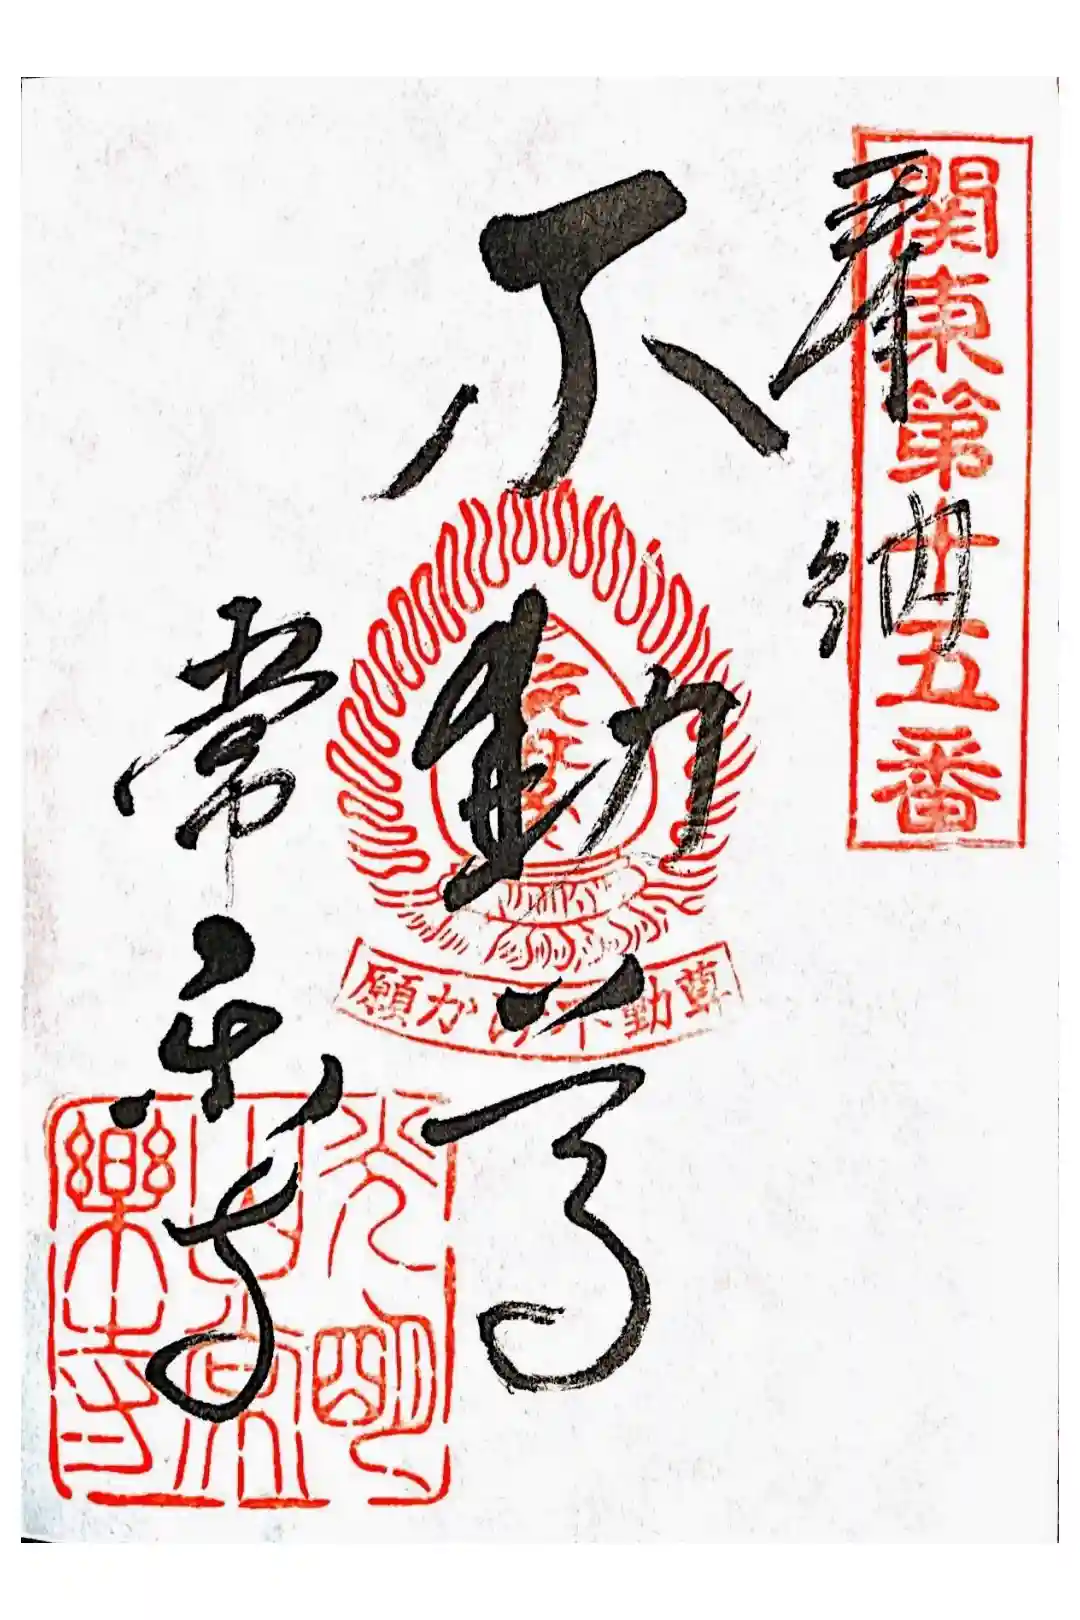 奉納
関東第廿五番
不動尊
願かけ不動尊
常楽寺
光明山常楽寺